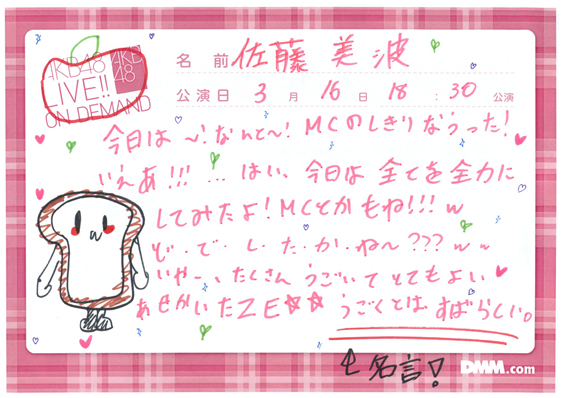 AKB48
LIVE!!
ON DEMAND
AKB
48
名前 佐藤 美波
公演日 3月 16日 18:30 公演
今日は〜!なんと〜!MCのしきりなうった!
いえあ!!! … はい、今日は全てを全力に
してみたよ!MCとかもね!!!w
ど・で・し・た・か・ね〜???ww
いやー、たくさんうごいてとてもよい
あせかいたZE☆☆ うごくとはすばらしい。
名言!
DMM.com